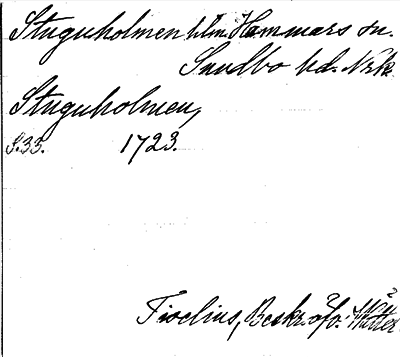 Stuguholmen hlm. Hammars sn.
Sundbo hd. Nrk.
Stuguholmen,
S.33. 1723.
Tiselius, Beskr. öfv.
Wätter